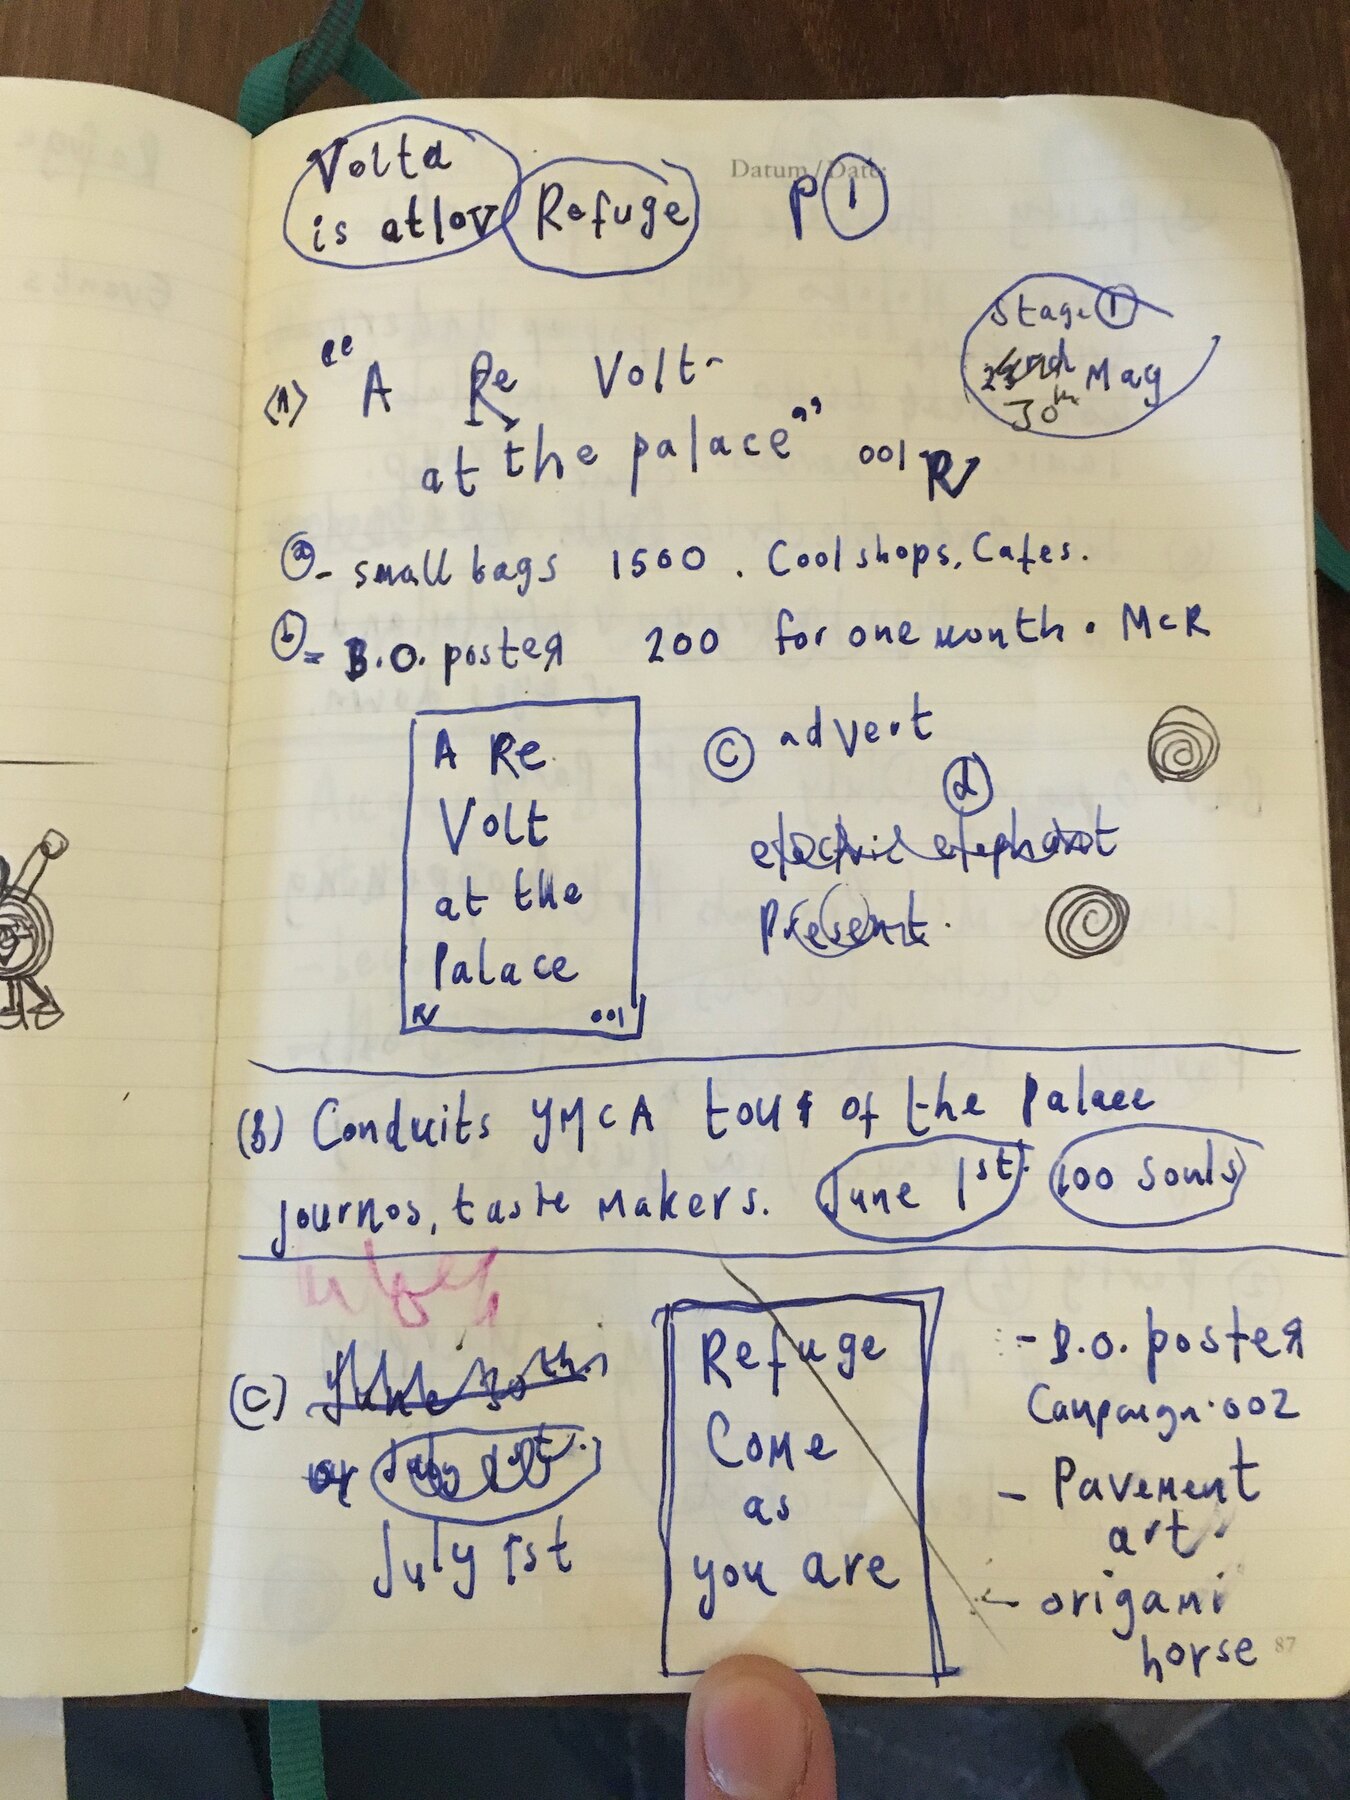 Volta
is atlov Refuge
Datum/Date:
P 1
Stage 1
May
30th
(A) "A Re Volt-
at the palace" 001 R
a - small bags 1500 . Cool shops, Cafes.
b = B.O. poster 200 for one month . McR
A Re
Volt
at the
Palace
001
c advert
d
electric elephant
Present.
(B) Conduits YMCA tour of the Palace
journos, taste makers. June 1st. 100 souls
(C) June 30th
or
July 1st
Refuge
Come
as
you are
- B.O. poster
Campaign.002
- Pavement
art
- origami
horse
87